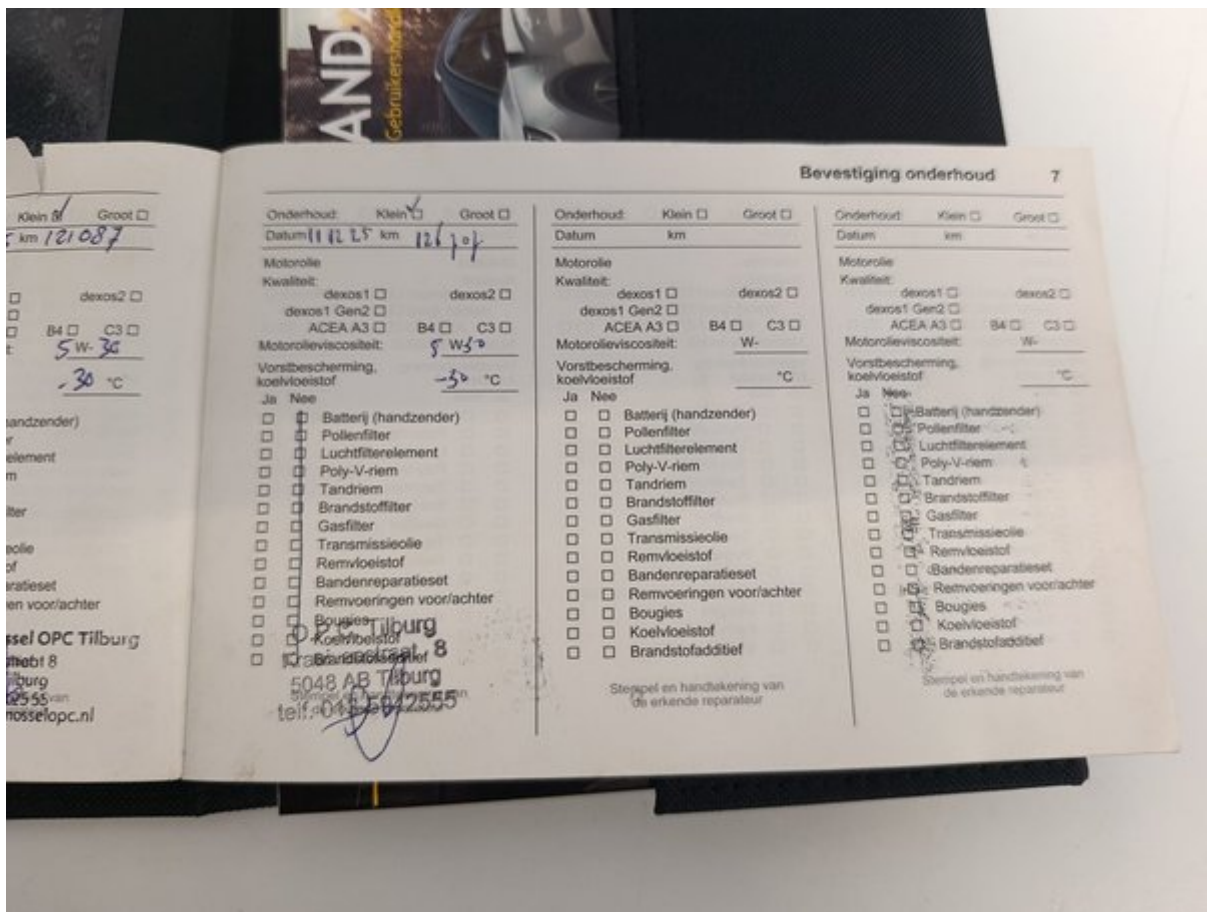 AND
Gebruikershandl
Bevestiging onderhoud 7
Klein Groot
km 121087
dexos2
B4 C3
5 W-30
-30 °C
andzender)
element
m
lter
eolie
of
aratieset
en voor/achter
ssel OPC Tilburg
straat 8
ilburg
2555 van
nosselopc.nl
Onderhoud: Klein Groot
Datum 11 12 25 km 126707
Motorolie
Kwaliteit:
dexos1 dexos2
dexos1 Gen2
ACEA A3 B4 C3
Motorolieviscositeit: 5 W30
Vorstbescherming,
koelvloeistof -30 °C
Ja Nee
Batterij (handzender)
Pollenfilter
Luchtfilterelement
Poly-V-riem
Tandriem
Brandstoffilter
Gasfilter
Transmissieolie
Remvloeistof
Bandenreparatieset
Remvoeringen voor/achter
Bougies
Koelvloeistof
Brandstofadditief
O.P.C. Tilburg
8
5048 AB Tilburg
telf. 013-5942555
Onderhoud: Klein Groot
Datum km
Motorolie
Kwaliteit:
dexos1 dexos2
dexos1 Gen2
ACEA A3 B4 C3
Motorolieviscositeit: W-
Vorstbescherming,
koelvloeistof °C
Ja Nee
Batterij (handzender)
Pollenfilter
Luchtfilterelement
Poly-V-riem
Tandriem
Brandstoffilter
Gasfilter
Transmissieolie
Remvloeistof
Bandenreparatieset
Remvoeringen voor/achter
Bougies
Koelvloeistof
Brandstofadditief
Stempel en handtekening van
de erkende reparateur
Onderhoud: Klein Groot
Datum km
Motorolie
Kwaliteit:
dexos1 dexos2
dexos1 Gen2
ACEA A3 B4 C3
Motorolieviscositeit: W-
Vorstbescherming,
koelvloeistof °C
Ja Nee
Batterij (handzender)
Pollenfilter
Luchtfilterelement
Poly-V-riem
Tandriem
Brandstoffilter
Gasfilter
Transmissieolie
Remvloeistof
Bandenreparatieset
Remvoeringen voor/achter
Bougies
Koelvloeistof
Brandstofadditief
Stempel en handtekening van
de erkende reparateur